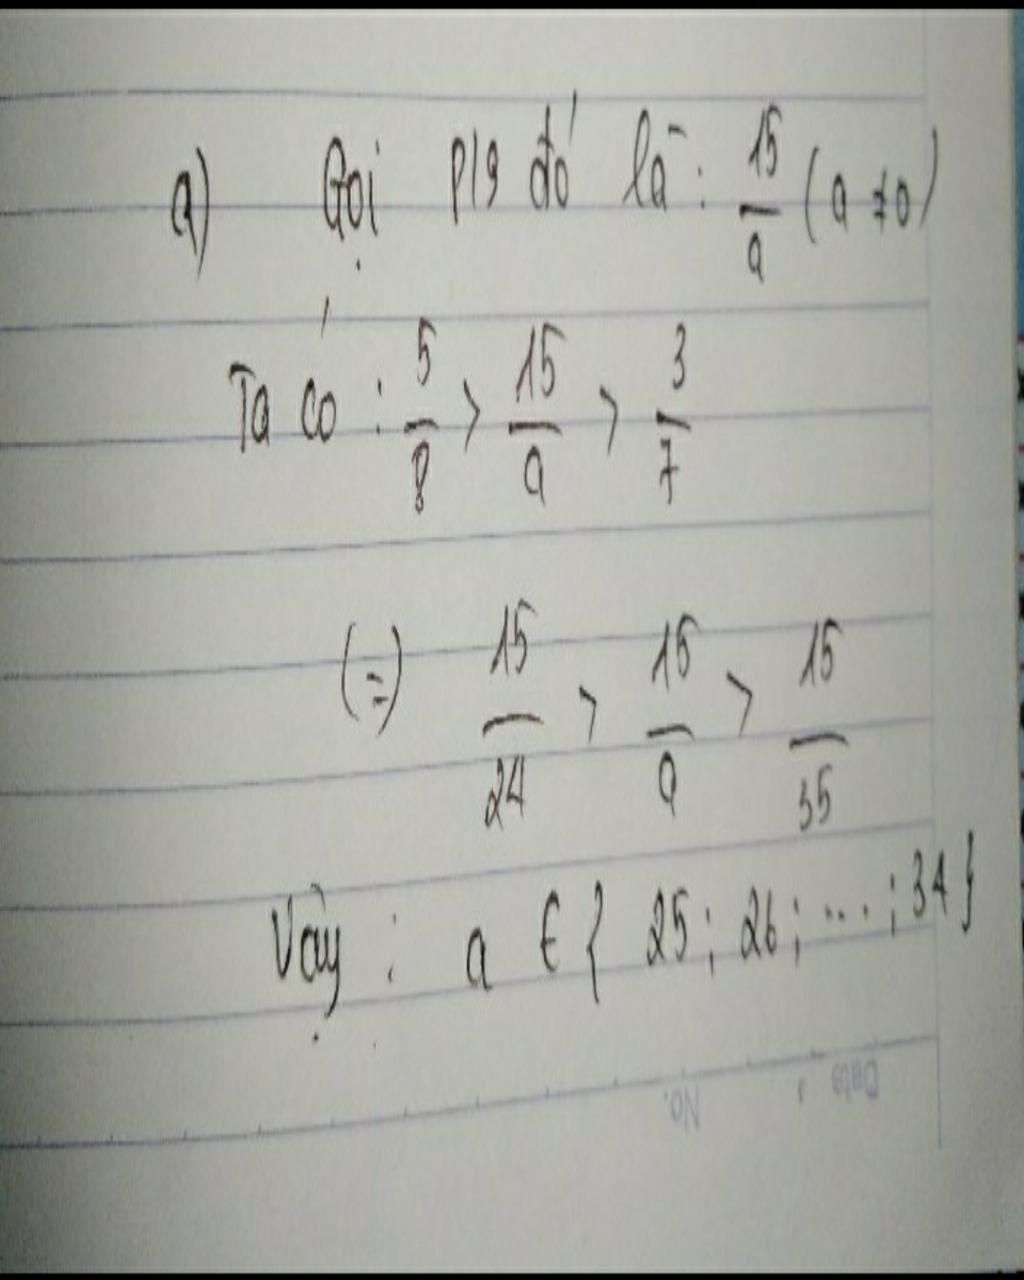 a) Gọi p/s đó là: 15/a (a ≠ 0)
Ta có: 5/8 > 15/a > 3/7
(=) 15/24 > 15/a > 15/35
Vậy: a ∈ { 25; 26; ...; 34}
Date
No.